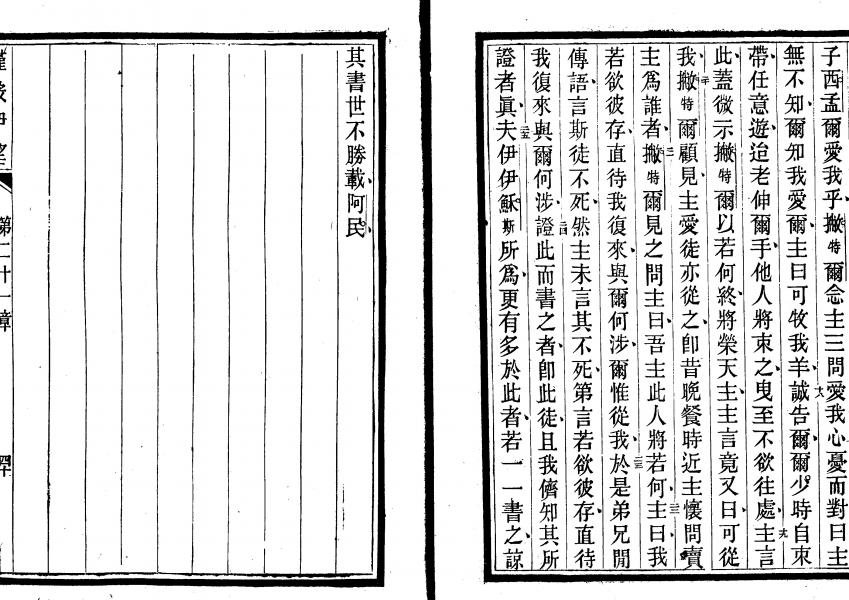 子西孟爾愛我乎撇特爾念主三問愛我心憂而對曰主
無不知爾知我愛爾主曰可牧我羊誠告爾爾少時自束
帶任意遊迨老伸爾手他人將束之曳至不欲往處主言
此蓋微示撇特爾以若何終將榮天主主言竟又曰可從
我撇特爾顧見主愛徒亦從之卽昔晚餐時近主懷問賣
主爲誰者撇特爾見之問主曰吾主此人將若何主曰我
若欲彼存直待我復來與爾何涉爾惟從我於是弟兄間
傳語言斯徒不死然主未言其不死第言若欲彼存直待
我復來與爾何涉證此而書之者卽此徒且我儕知其所
證者眞夫伊伊穌斯所爲更有多於此者若一一書之諒
其書世不勝載阿民
第二十一章